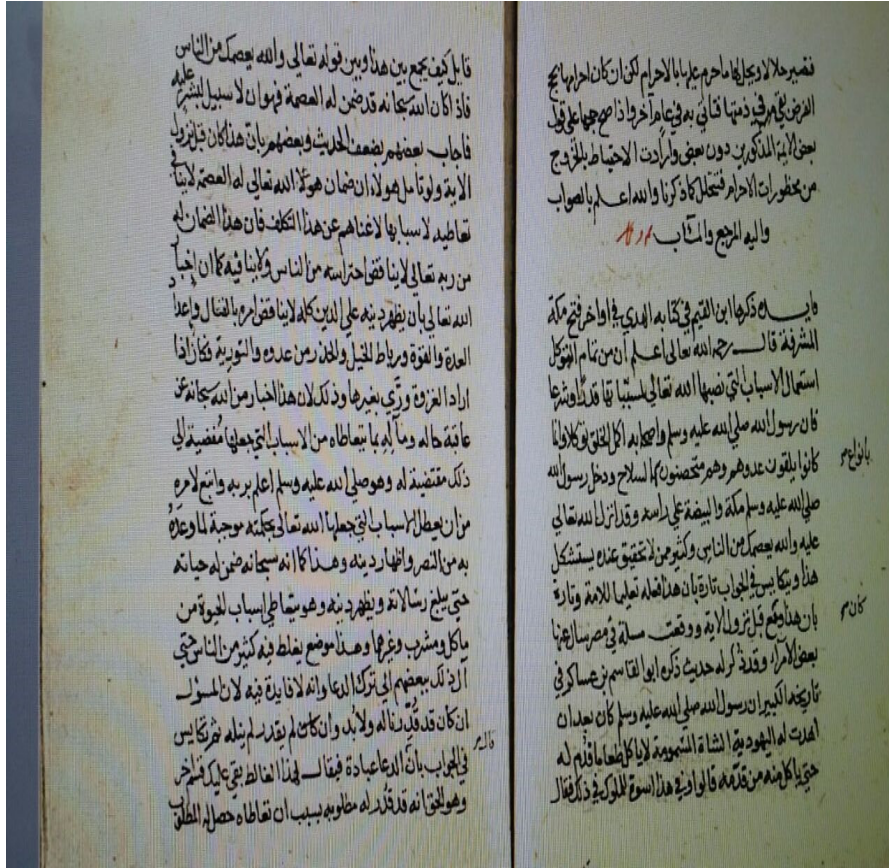 فتصير حلالا ويحل لها ما حرم عليها بالاحرام لكن ان كان احرامها بحج
الفرض بقي في ذمتها فتاتي به في عام آخر واذا صح حجها على قول
بعض الائمة المذكورين دون بعض وأرادت الاحتياط بالخروج
من محظورات الاحرام فتتحلل كما ذكرنا والله اعلم بالصواب
واليه المرجع والمآب
فايدة ذكرها ابن القيم في كتابه الهدي في اواخر فتح مكة
المشرفة قال رحمه الله تعالى اعلم أن من تمام التوكل
استعمال الاسباب التي نصبها الله تعالى لمسبباتها قدرا وشرعا
فان رسول الله صلى الله عليه وسلم واصحابه اكمل الخلق توكلا وانما
كانوا يلقون عدوهم وهم متحصنون بالسلاح ودخل رسول الله
بانواع صح
صلى الله عليه وسلم مكة والبيضة على راسه وقد انزل الله تعالى
عليه والله يعصمك من الناس وكثير ممن لا تحقيق عنده يستشكل
هذا ويتكايس في الجواب تارة بان هذا فعله تعليما للامة وتارة
بان هذا وقع قبل نزول الآية ووقعت مسئلة في مصر سال عنها
كان صح
بعض الأمراء وقد ذكر له حديث ذكره ابو القاسم بن عساكر في
تاريخه الكبير ان رسول الله صلى الله عليه وسلم كان بعد ان
اهدت له اليهودية الشاة المسمومة لا ياكل طعاما قدم له
حتى ياكل منه من قدمه قالوا وفي هذا اسوة للملوك في ذلك فقال
قايل كيف يجمع بين هذا وبين قوله تعالى والله يعصمك من الناس
فاذا كان الله سبحانه قد ضمن له العصمة فهو ان لا سبيل لبشر عليه
فاجاب بعضهم بضعف الحديث وبعضهم بان هذا كان قبل نزول
الآية ولو تامل هولاء ان ضمان الله تعالى له العصمة لا ينافي
تعاطيه لاسبابها لاغناهم عن هذا التكلف فان هذا الضمان له
من ربه تعالى لا يناقض احتراسه من الناس ولا ينافيه كما ان إخبار
الله تعالى بان يظهر دينه علي الدين كله لا يناقض امره بالقتال واعداد
العدة والقوة ورباط الخيل والحذر من عدوه والتورية فكان إذا
اراد الغزوة ورَّي بغيرها وذلك لان هذا اخبار من الله سبحانه عن
عاقبة حاله ومآله بما يتعاطاه من الاسباب التي جعلها مُفضية الي
ذلك مقتضية له وهو صلى الله عليه وسلم اعلم بربه واتبع لامره
من ان يعطل الاسباب التي جعلها الله تعالى بحكمته موجبة لما وعدهُ
به من النصر واظهار دينه وهذا كما انه سبحانه ضمن له حياته
حتى يبلغ رسالاته ويظهر دينه وهو يتعاطي اسباب الحيوة من
ماكل ومشرب وغيرهما وهذا موضع يغلط فيه كثير من الناس حتى
آل ذلك ببعضهم الى ترك الدعا وانه لا فايدة فيه لان المسؤل
ان كان قد قُدِّر ناله ولا بُد وان كان لم يقدر لم ينله ثم تكايس
في الجواب بان الدعا عبادة فيقال لهذا الغالط بقي عليك قسم آخر
قال صح
وهو الحق انه قد قُدر له مطلوبه بسبب ان تعاطاه حصل له المطلوب